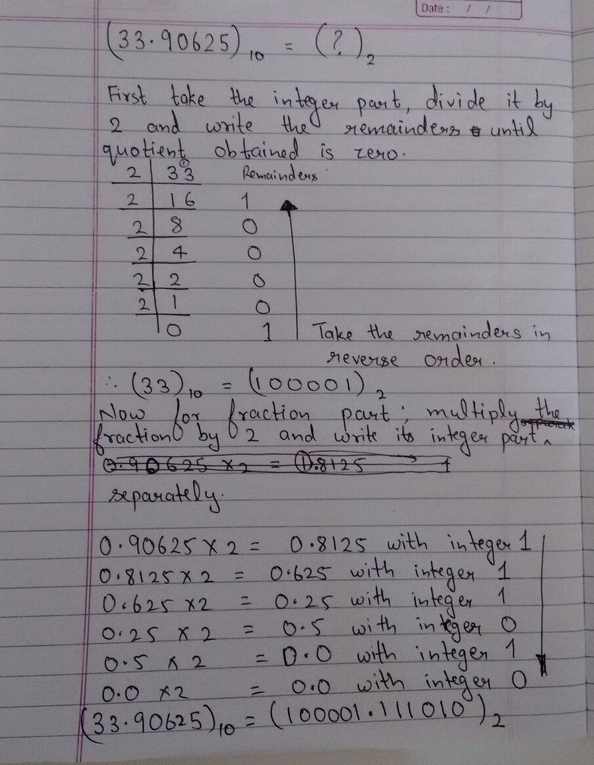 Date: / /
(33.90625)10 = (?)2
First take the integer part, divide it by
2 and write the remainders until
quotient obtained is zero.
2 | 33 Remainders
2 | 16 1
2 | 8 0
2 | 4 0
2 | 2 0
2 | 1 0
0 1 Take the remainders in
reverse order.
∴ (33)10 = (100001)2
Now for fraction part; multiply the
fraction by 2 and write its integer part
0.90625 x 2 = 1.8125 1
separately.
0.90625 x 2 = 0.8125 with integer 1
0.8125 x 2 = 0.625 with integer 1
0.625 x 2 = 0.25 with integer 1
0.25 x 2 = 0.5 with integer 0
0.5 x 2 = 0.0 with integer 1
0.0 x 2 = 0.0 with integer 0
(33.90625)10 = (100001.111010)2